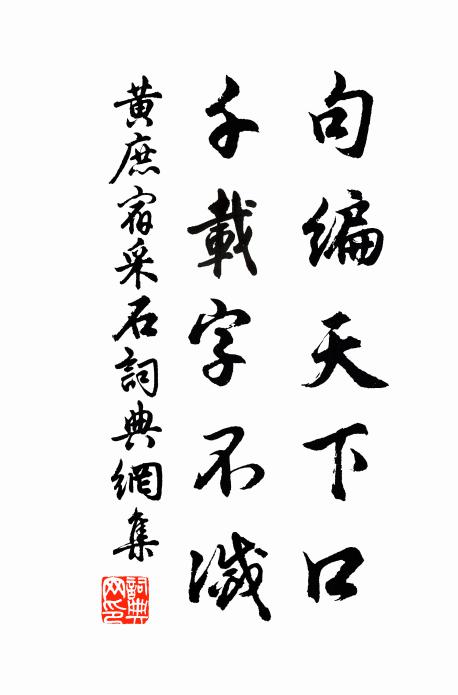 句編天下口
千載字不滅
黃庶宿采石詞典網集
詞典網印